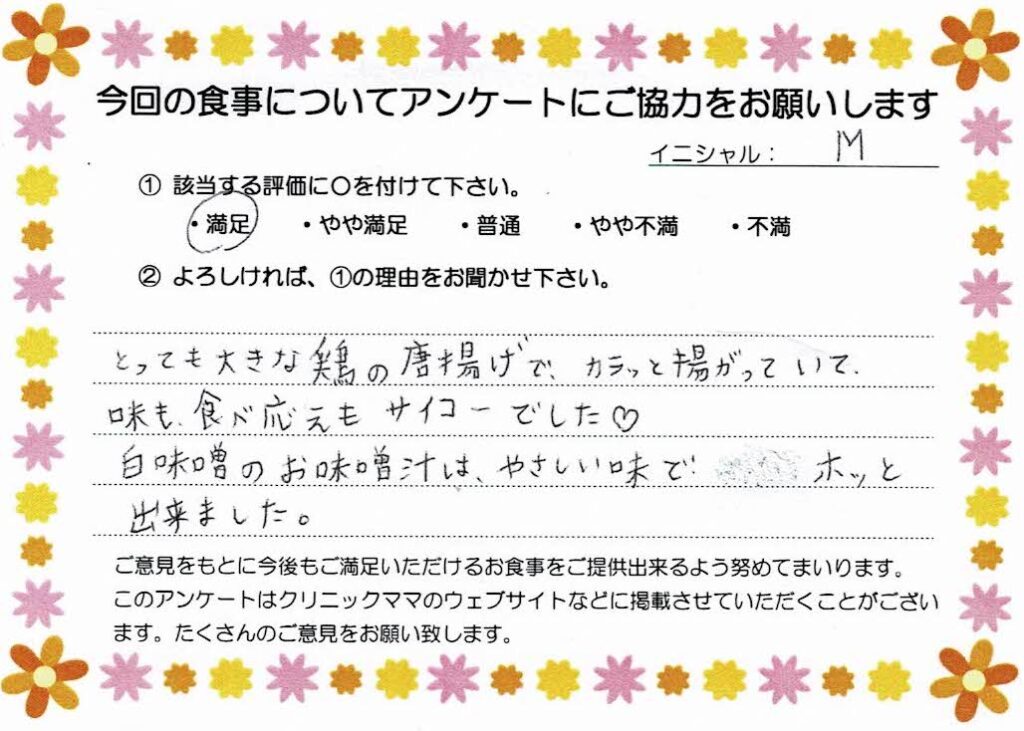 今回の食事についてアンケートにご協力をお願いします
イニシャル： M
① 該当する評価に〇を付けて下さい。
・満足 ・やや満足 ・普通 ・やや不満 ・不満
② よろしければ、①の理由をお聞かせ下さい。
とっても大きな鶏の唐揚げで、カラッと揚がっていて、
味も、食べ応えもサイコーでした♡
白味噌のお味噌汁は、やさしい味で ホッと
出来ました。
ご意見をもとに今後もご満足いただけるお食事をご提供出来るよう努めてまいります。
このアンケートはクリニックママのウェブサイトなどに掲載させていただくことがござい
ます。たくさんのご意見をお願い致します。